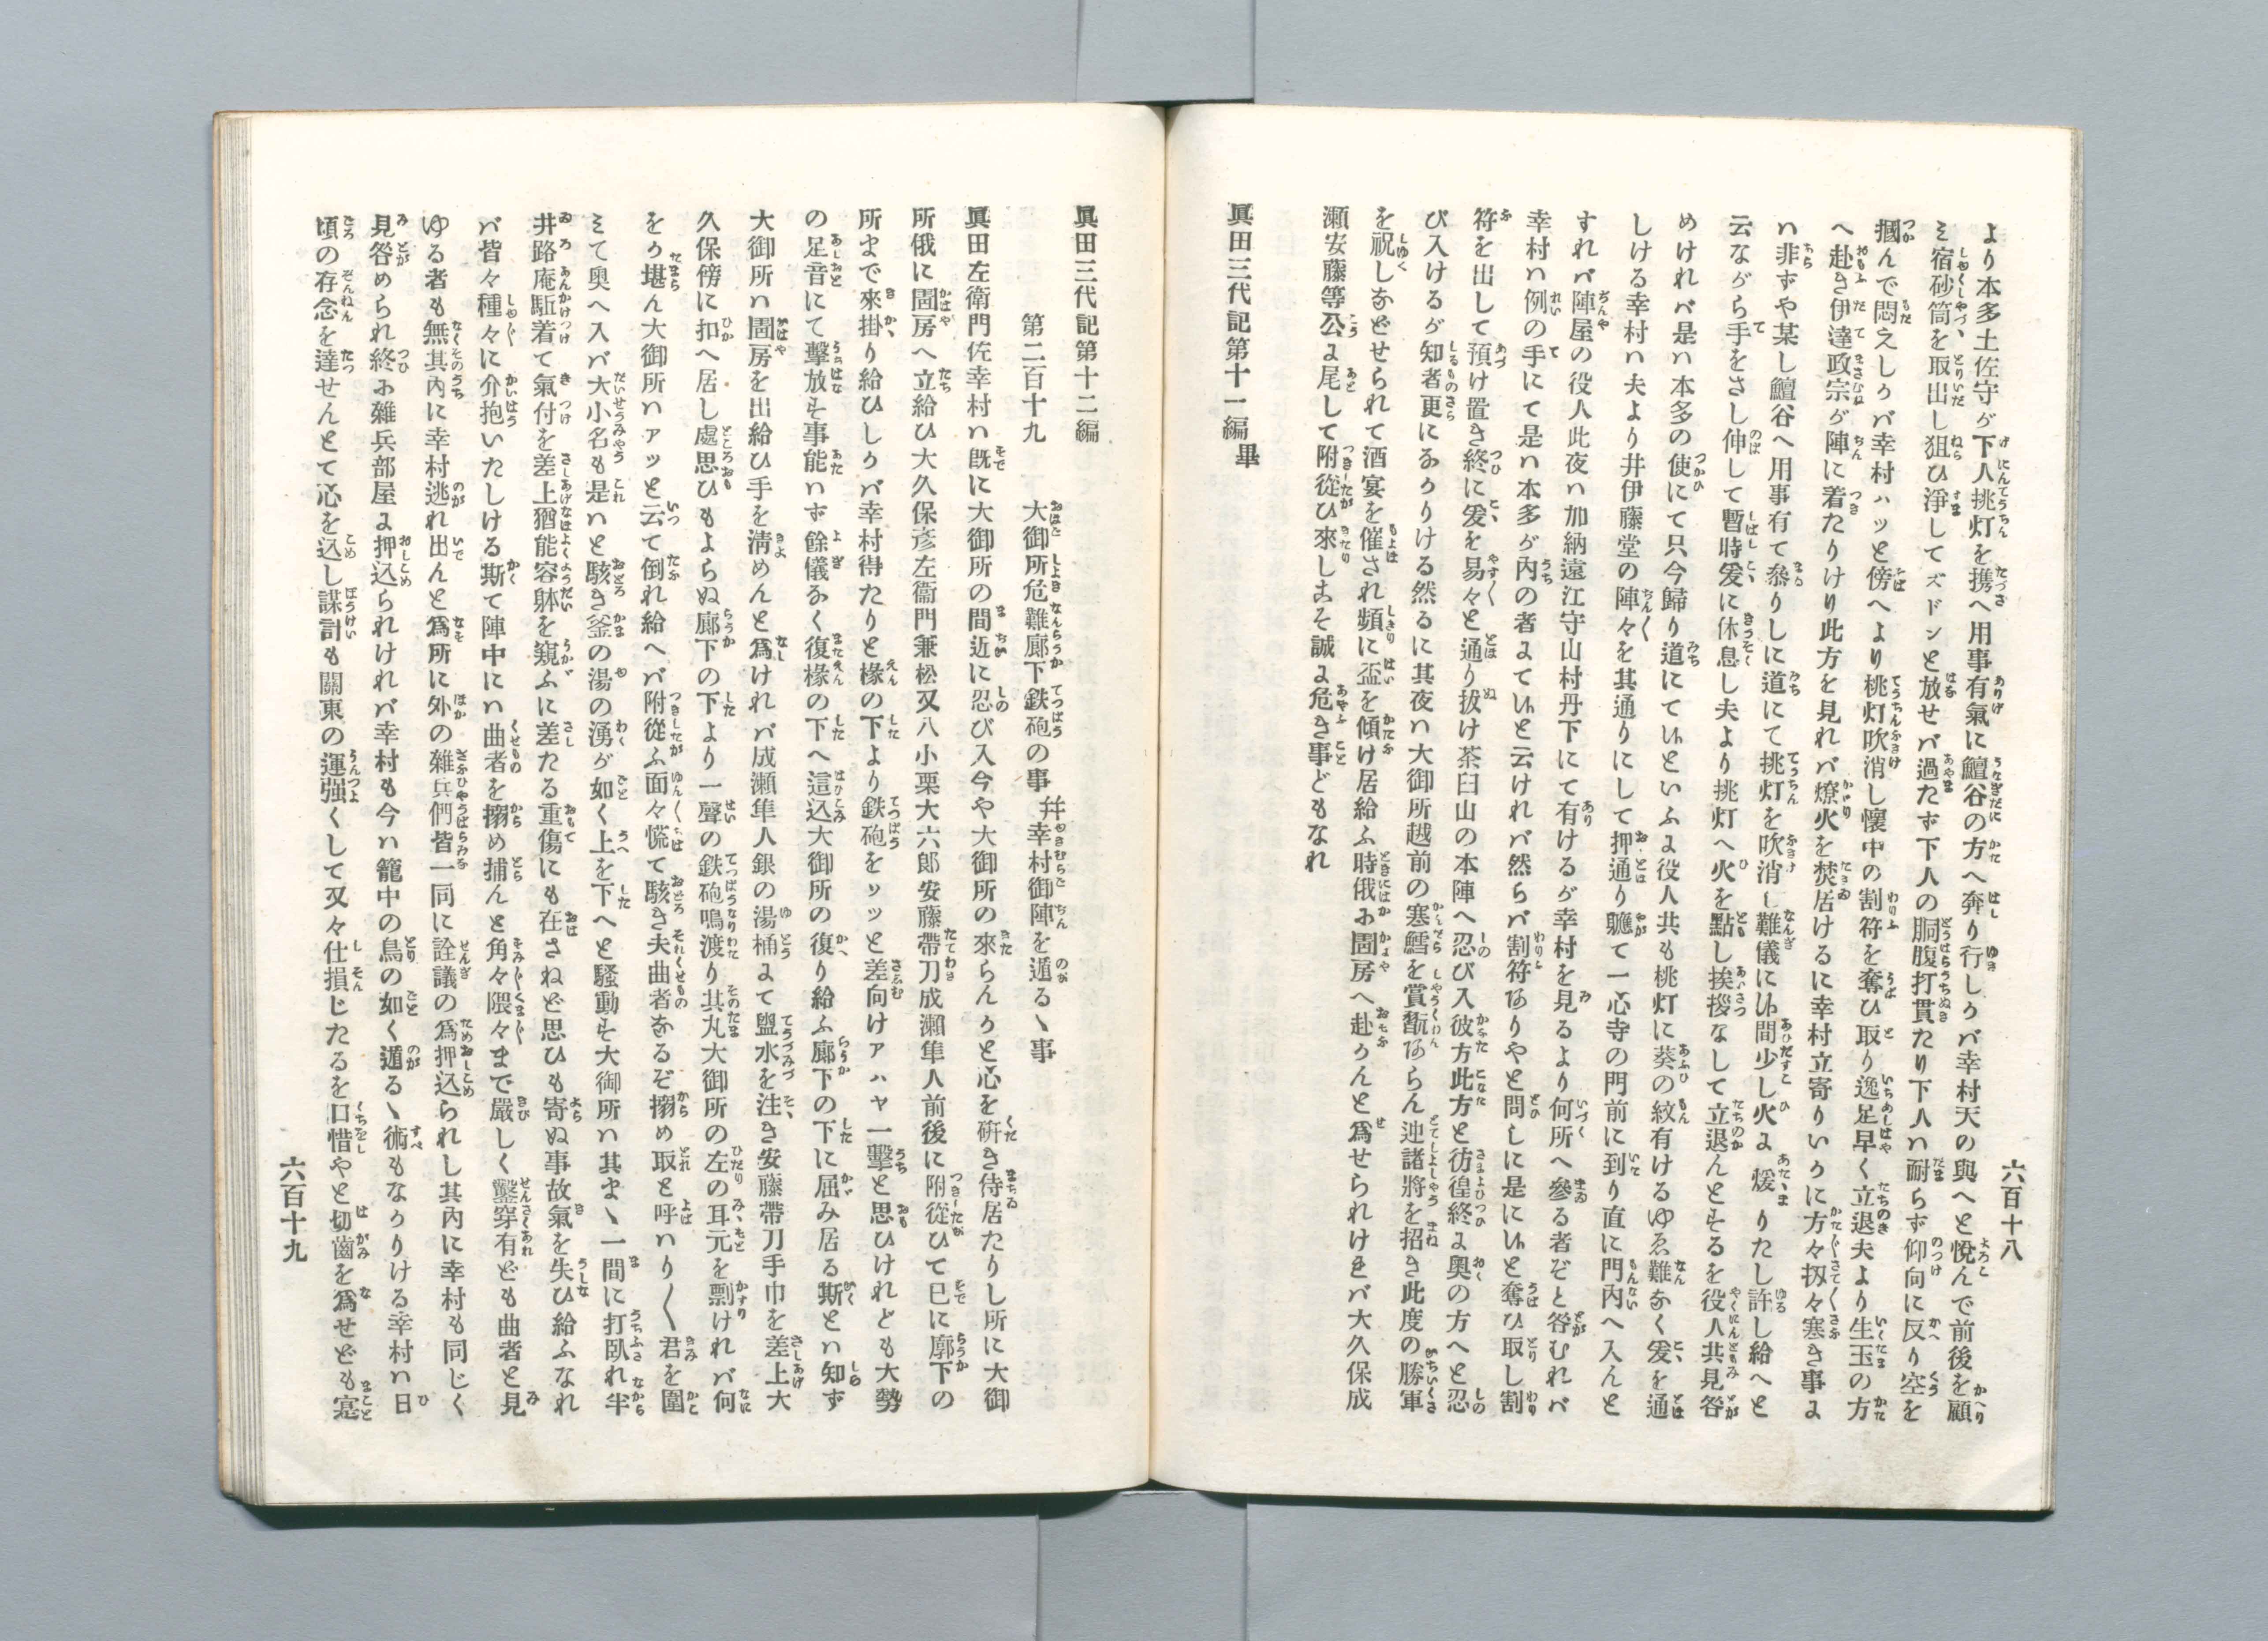 六百十八
より本多土佐守が下人挑灯を携へ用事有氣に鱣谷の方へ奔り行しかバ幸村天の與へと悅んで前後を顧
ミ宿砂筒を取出し狙ひ淨してズドンと放せバ過たず下人の胴腹打貫たり下人ハ耐らず仰向に反り空を
摑んで悶えしかバ幸村ハッと傍へより桃灯吹消し懷中の割符を奪ひ取り逸足早く立退夫より生玉の方
へ赴き伊達政宗が陣に着たりけり此方を見れバ燎火を焚居けるに幸村立寄りいかに方々扨々寒き事よ
ハ非ずや某し鱣谷へ用事有て叅りしに道にて挑灯を吹消し難儀に𪜈間少し火よ煖りたし許し給へと
云ながら手をさし伸して暫時爰に休息し夫より挑灯へ火を點し挨拶なして立退んとするを役人共見咎
めけれバ是ハ本多の使にて只今歸り道にていといふよ役人共も桃灯に葵の紋有けるゆゑ難なく爰を通
しける幸村ハ夫より井伊藤堂の陣々を其通りにして押通り軈て一心寺の門前に到り直に門內へ入んと
すれバ陣屋の役人此夜ハ加納遠江守山村丹下にて有けるが幸村を見るより何所へ參る者ぞと咎むれバ
幸村ハ例の手にて是ハ本多が內の者よていと云けれバ然らバ割符ありやと問しに是にいと奪ひ取し割
符を出して預け置き終に爰を易々と通り拔け茶臼山の本陣へ忍び入彼方此方と彷徨終よ奧の方へと忍
び入けるが知者更になかりける然るに其夜ハ大御所越前の寒鱈を賞翫あらん迚諸將を招き此度の勝軍
を祝しなどせられて酒宴を催され頻に盃を傾け居給ふ時俄よ圊房へ赴かんと爲せられけれバ大久保成
瀬安藤等公よ尾して附從ひ來しこそ誠よ危き事どもなれ
眞田三代記第十一編畢
眞田三代記第十二編
第二百十九　大御所危難廊下鉄砲の事幷幸村御陣を遁るヽ事
眞田左衛門佐幸村ハ既に大御所の間近に忍び入今や大御所の來らんかと心を硏き侍居たりし所に大御
所俄に圊房へ立給ひ大久保彥左衞門兼松又八小栗大六郎安藤帶刀成瀬隼人前後に附從ひて已に廓下の
所まで來掛り給ひしかバ幸村得たりと椽の下より鉄砲をソッと差向けアハヤ一擊と思ひけれども大勢
の足音にて擊放す事能ハず餘儀なく復椽の下へ這込大御所の復り給ふ廊下の下に屈み居る斯とハ知ず
大御所ハ圊房を出給ひ手を淸めんと爲けれバ成瀬隼人銀の湯桶よて盥水を注き安藤帶刀手巾を差上大
久保傍に扣へ居し處思ひもよらぬ廊下の下より一聲の鉄砲鳴渡り其丸大御所の左の耳元を剽けれバ何
をか堪ん大御所ハアッと云て倒れ給へバ附從ふ面々慌て駭き夫曲者なるぞ搦め取と呼ハり〱君を圍
ミて奧へ入バ大小名も是ハと駭き釜の湯の湧が如く上を下へと騷動す大御所ハ其まヽ一間に打臥れ半
井路庵駈着て氣付を差上猶能容躰を窺ふに差たる重傷にも在さねど思ひも寄ぬ事故氣を失ひ給ふなれ
バ皆々種々に介抱いたしける斯て陣中にハ曲者を搦め捕んと角々隈々まで嚴しく鑿穿有ども曲者と見
ゆる者も無其內に幸村逃れ出んと爲所に外の雜兵們皆一同に詮議の爲押込られし其內に幸村も同じく
見咎められ終よ雜兵部屋よ押込られけれバ幸村も今ハ籠中の鳥の如く遁るヽ術もなかりける幸村ハ日
頃の存念を達せんとて心を込し謀計も關東の運强くして又々仕損じたるを口惜やと切齒を爲せども寔
六百十九